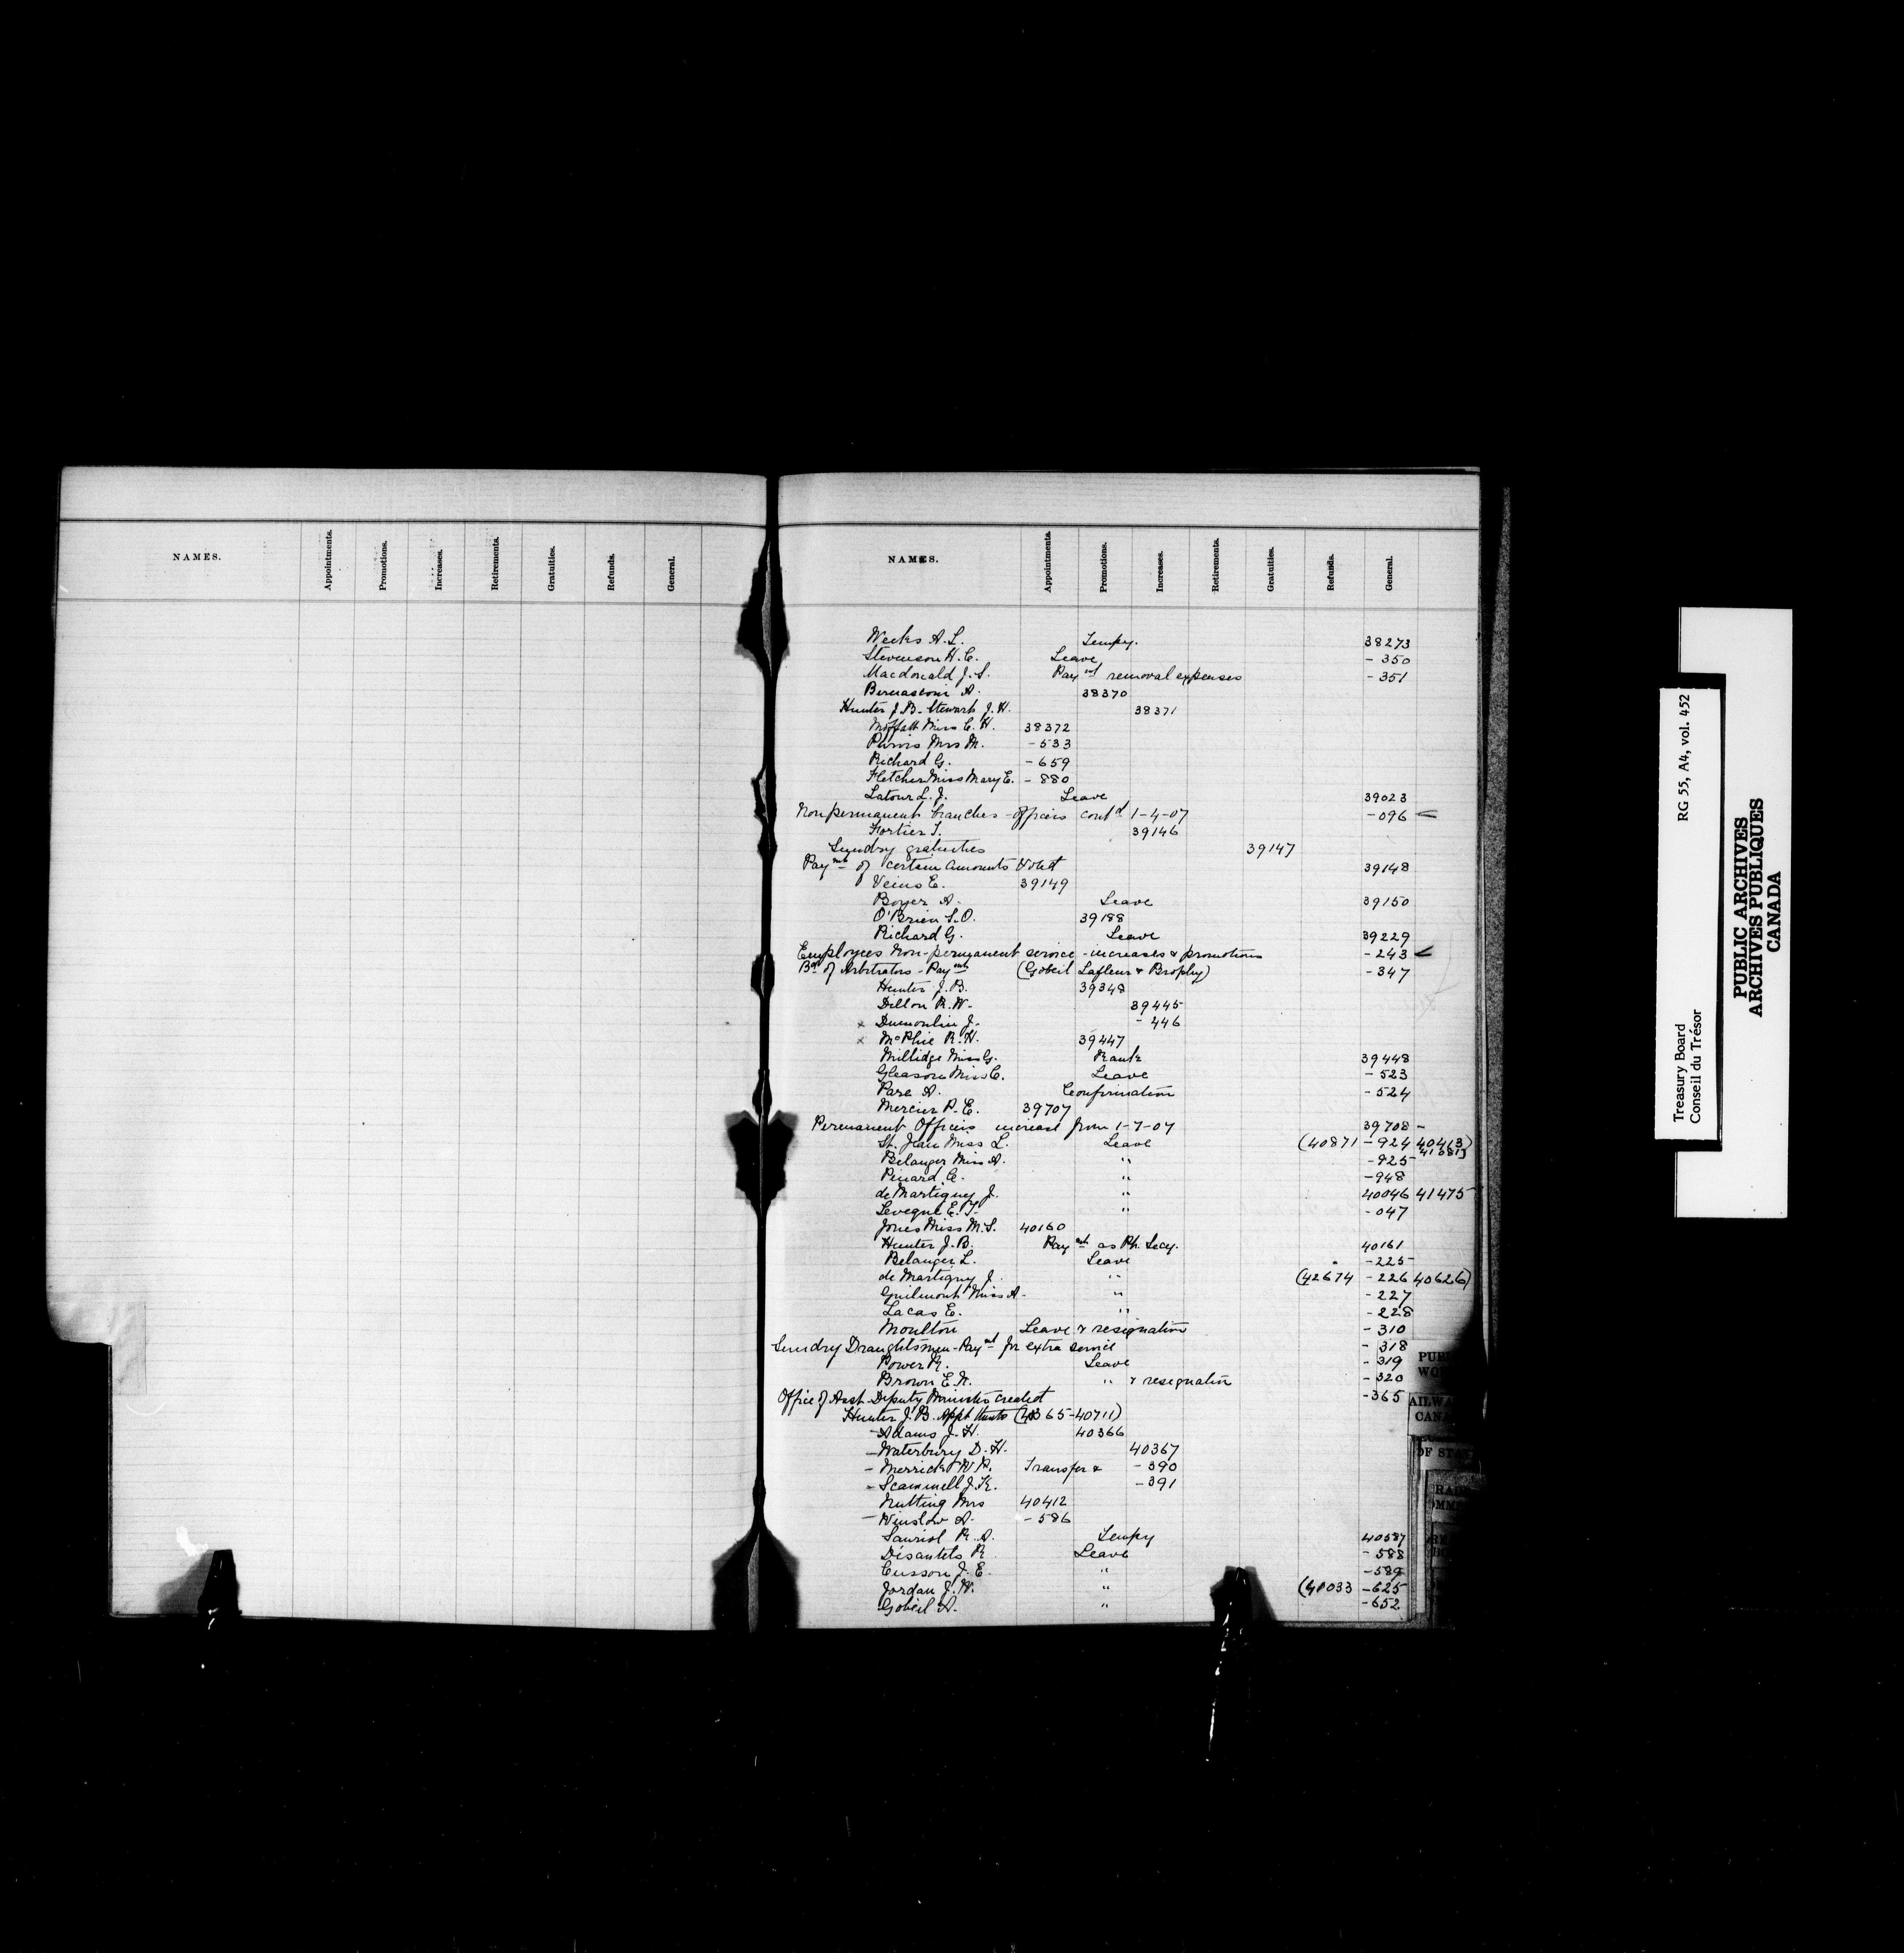 NAMES. Appointments. Promotions. Increases. Retirements. Gratuities. Refunds. General.
NAMES. Appointments. Promotions. Increases. Retirements. Gratuities. Refunds. General.
Weeks A. L. Tempy. 38273
Stevenson H. C. Leave - 350
Macdonald J. S. Paymt removal expenses - 351
Bernasconi A. 38370
Hunter J. B. - Stewart J. H. 38371
Moffatt Miss E. H. 38372
Purvis Mrs M. - 533
Richard G. - 659
Fletcher Miss Mary E. - 880
Latour L. J. Leave 39023
Non permanent branches - officers contd 1-4-07 - 096
Fortier T. 39146
Sundry gratuities 39147
Paymt of certain amounts voted 39148
Veino E. 39149
Boyer A. Leave 39150
O'Brien S. O. 39188
Richard G. Leave 39229
Employees Non-permanent service - increases & promotions - 243
Bd of Arbitrators - Paymt (Gobeil Lafleur & Brophy) - 347
Hunter J. B. 39348
Dillon R. W. 39445
x Dumoulin J. - 446
x McPhie R. H. 39447
Millidge Miss G. Rank 39448
Gleason Miss C. Leave - 523
Pare A. Confirmation - 524
Mercier P. E. 39707
Permanent Officers increase from 1-7-07 39708 -
St. Jean Miss L. Leave (40871 - 924 40463)
Belanger Miss A. " - 925 41381)
Pinard C. " - 948
de Martigny J. " 40046 41475
Leveque E. T. " - 047
Jones Miss M. S. 40160
Hunter J. B. Paymt as Pr. Secy. 40161
Belanger L. Leave - 225
de Martigny J. " (42674 - 226 40626)
Guilmont Miss A. " - 227
Lacas E. " - 228
Moulton Leave & resignation - 310
Sundry Draughtsmen - Paymt for extra service - 318
Power R. Leave - 319
Brown E. N. " & resignation - 320
Office of Asst Deputy Minister created - 365
Hunter J. B. Appt thereto (40365-40711)
- Adams J. H. 40366
- Waterbury D. H. 40367
- Merrick W R. Transfer & - 390
- Scammell J. K. - 391
Nutting Mrs 40412
- Winslow A. - 586
Sauriol R. A. Tempy 40587
Désautels R. Leave - 588
Cusson J. E. " - 589
Jordan J. W. " (41033 - 625
Gobeil A. " - 652
Treasury Board RG 55, A4, vol. 452
Conseil du Trésor
PUBLIC ARCHIVES
ARCHIVES PUBLIQUES
CANADA